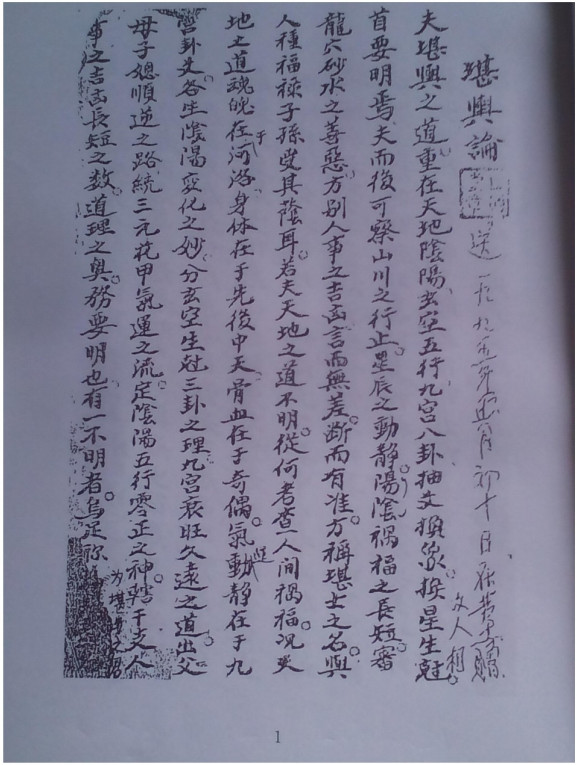 堪輿論
夫堪輿之道重在天地陰陽玄空五行九宮八卦抽爻換象換星生尅
首要明焉夫而後可察山川之行止。星辰之動靜陽陰禍福之長短審
龍穴砂水之善惡。方別人事之吉凶言而無差。斷而有准方稱堪士之名與
人種福祿子孫受其蔭耳。若夫天地之道不明。從何考查人間禍福。况夫
地之道魂魄在于河洛身体在于先後中天骨血在于奇偶。氣動靜在于九
宮卦爻各生陰陽変化之妙。分玄空生尅三卦之理九宮衰旺久遠之道出父
母子媳順逆之路統三元花甲氣運之流定陰陽五行零正之神轄干支人
事之吉凶長短之数。道理之奥務要明也有一不明者。烏足称
1